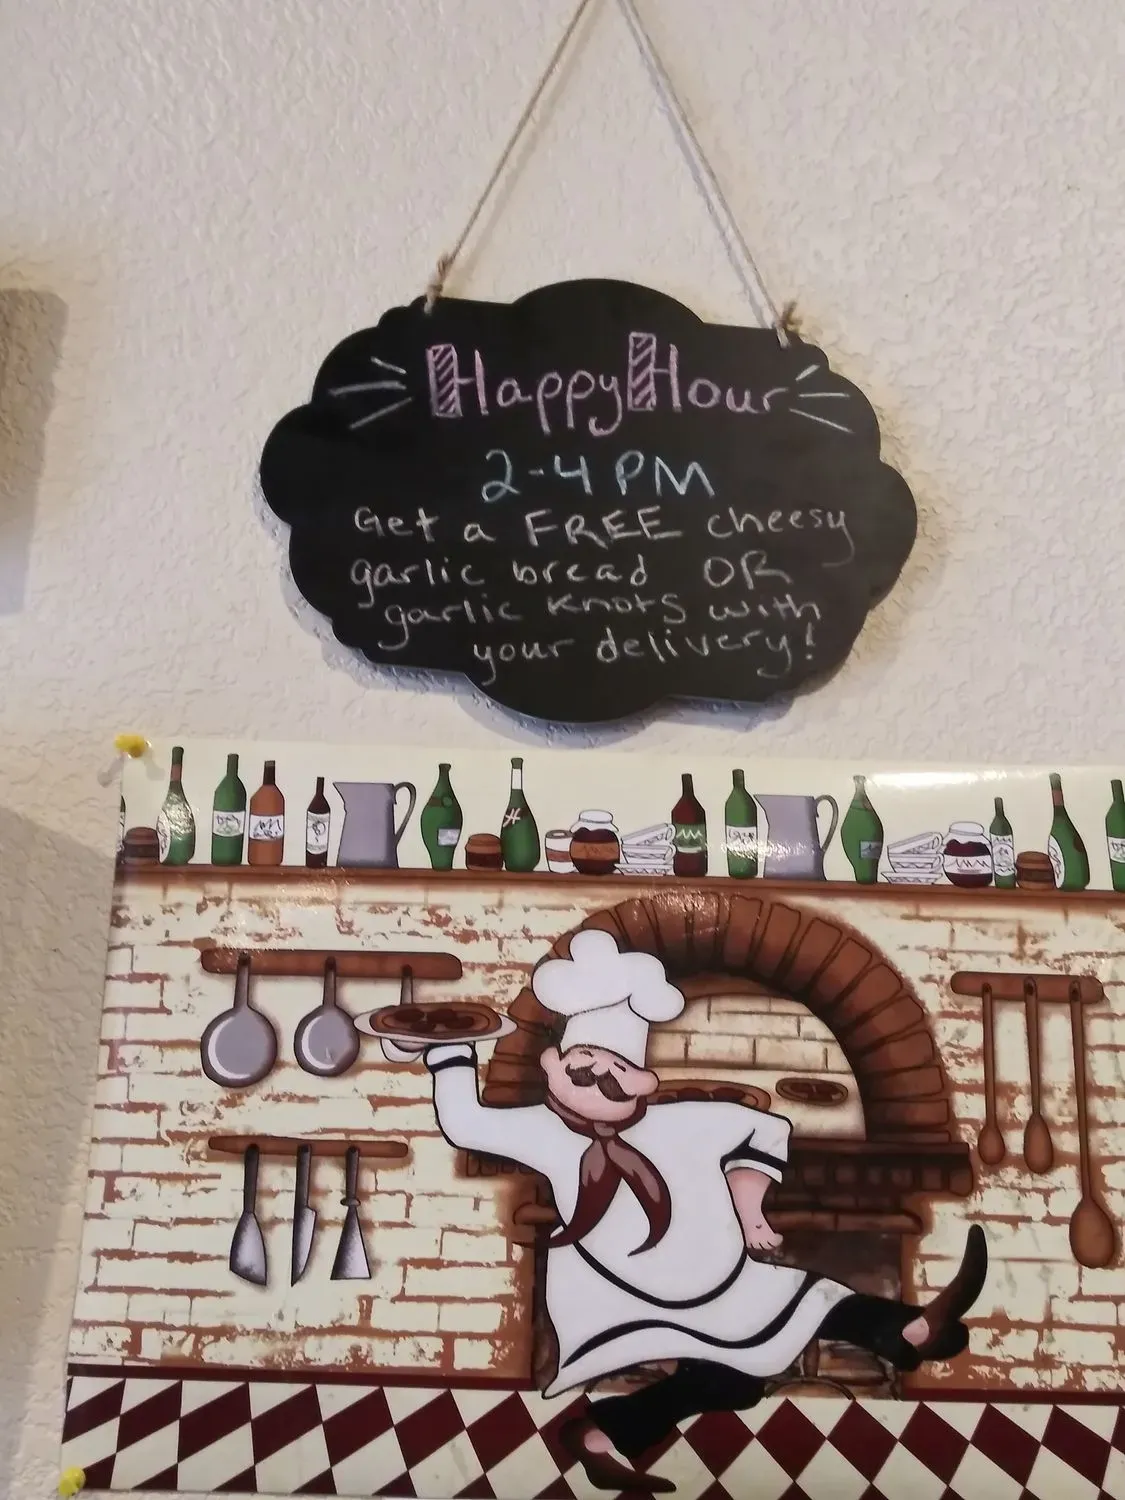 Happy Hour
2-4 PM
Get a FREE cheesy
garlic bread OR
garlic knots with
your delivery!